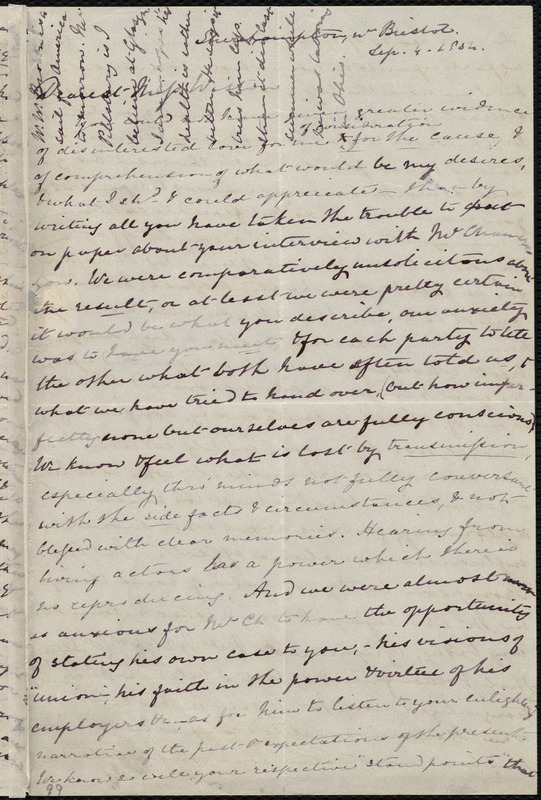 nr Bristol.
Sep. 4. 1854.
Dearest Miss
greater evidence
of consideration
of disinterested love for me & for the cause, &
of comprehension of what would be my desires,
& what I shd. I could appreciate - than by
writing all you have taken the trouble to put
on paper about your interview with Mr Chamerov
zow. We were comparatively unsolicitous about
the result, or at least we were pretty certain
it would be what you describe, our anxiety
was to have you meet & for each party to tell
the other what both have often told us, &
what we have tried to hand over, (but how imper-
fectly none but ourselves are fully conscious)
We know & feel what is lost by transmission,
especially thro' minds not fully conversant
with the side facts & circumstances, & not
blessed with clear memories. Hearing from
living actors has a power which there is
no reproducing. And we were almost
as anxious for Mr Ch. to have the opportunity
of stating his own case to you, - his visions of
"union", his faith in the power & virtue of his
employers &c. - as for him to listen to your enlightening
narrative of the past & expectations of the present.
We know so well your respective "stand points" that
99
W. W. Brown is
sail for America
tomorrow. Miss
Pillsbury is I
believe at Glasgow
health is rather
better
Ohio.